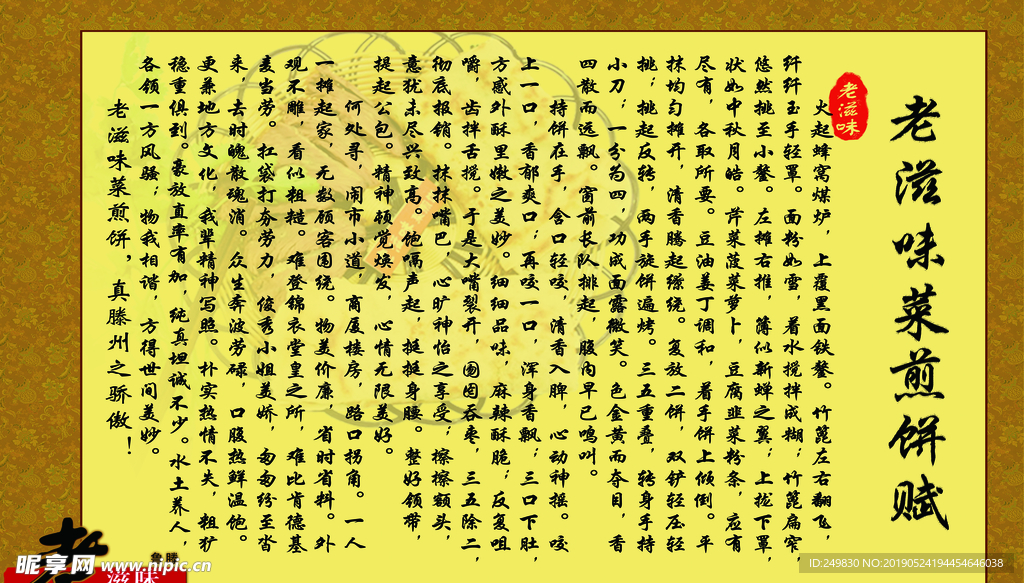 老滋味菜煎饼赋
老滋味
火起蜂窝煤炉，上覆黑面铁鏊。竹篦左右翻飞，
纤纤玉手轻罩。面粉如雪，着水搅拌成糊；竹篦扁窄，
悠然挑至小鏊。左摊右推，薄似新蝉之翼；上拢下罩，
状如中秋月皓。芹菜菠菜萝卜，豆腐韭菜粉条，应有
尽有，各取所要。豆油姜丁调和，着手饼上倾倒。平
抹均匀摊开，清香腾起缭绕。复放二饼，双铲轻压轻
挑；挑起反转，两手旋饼遍烤。三五重叠，转身手持
小刀；一分为四，功成面露微笑。色金黄而夺目，香
四散而远飘。窗前长队排起，腹内早已鸣叫。
持饼在手，含口轻咬，清香入脾，心动神摇。咬
上一口，香郁爽口；再咬一口，浑身香飘；三口下肚，
方感外酥里嫩之美妙。细细品味，麻辣酥脆；反复咀
嚼，齿拌舌搅。于是大嘴裂开，囫囵吞枣，三五除二，
彻底报销。抹抹嘴巴，心旷神怡之享受；擦擦额头，
意犹未尽兴致高。饱嗝声起，挺挺身腰。整好领带，
提起公包。精神顿觉焕发，心情无限美好。
何处寻，闹市小道，商厦楼房，路口拐角。一人
一摊起家，无数顾客围绕。物美价廉，省时省料。外
观不雕，看似粗糙。难登锦衣堂皇之所，难比肯德基
麦当劳。扛袋打夯劳力，俊秀小姐美娇，匆匆纷至沓
来，去时魄散魂消。众生奔波劳碌，口腹热鲜温饱。
更兼地方文化，我辈精神写照。朴实热情不失，粗犷
稳重俱到。豪放直率有加，纯真坦诚不少。水土养人，
各领一方风骚；物我相谐，方得世间美妙。
老滋味菜煎饼，真滕州之骄傲！
老
滋味
昵享网 www.nipic.cn
ID:249830 NO:20190524194454646038